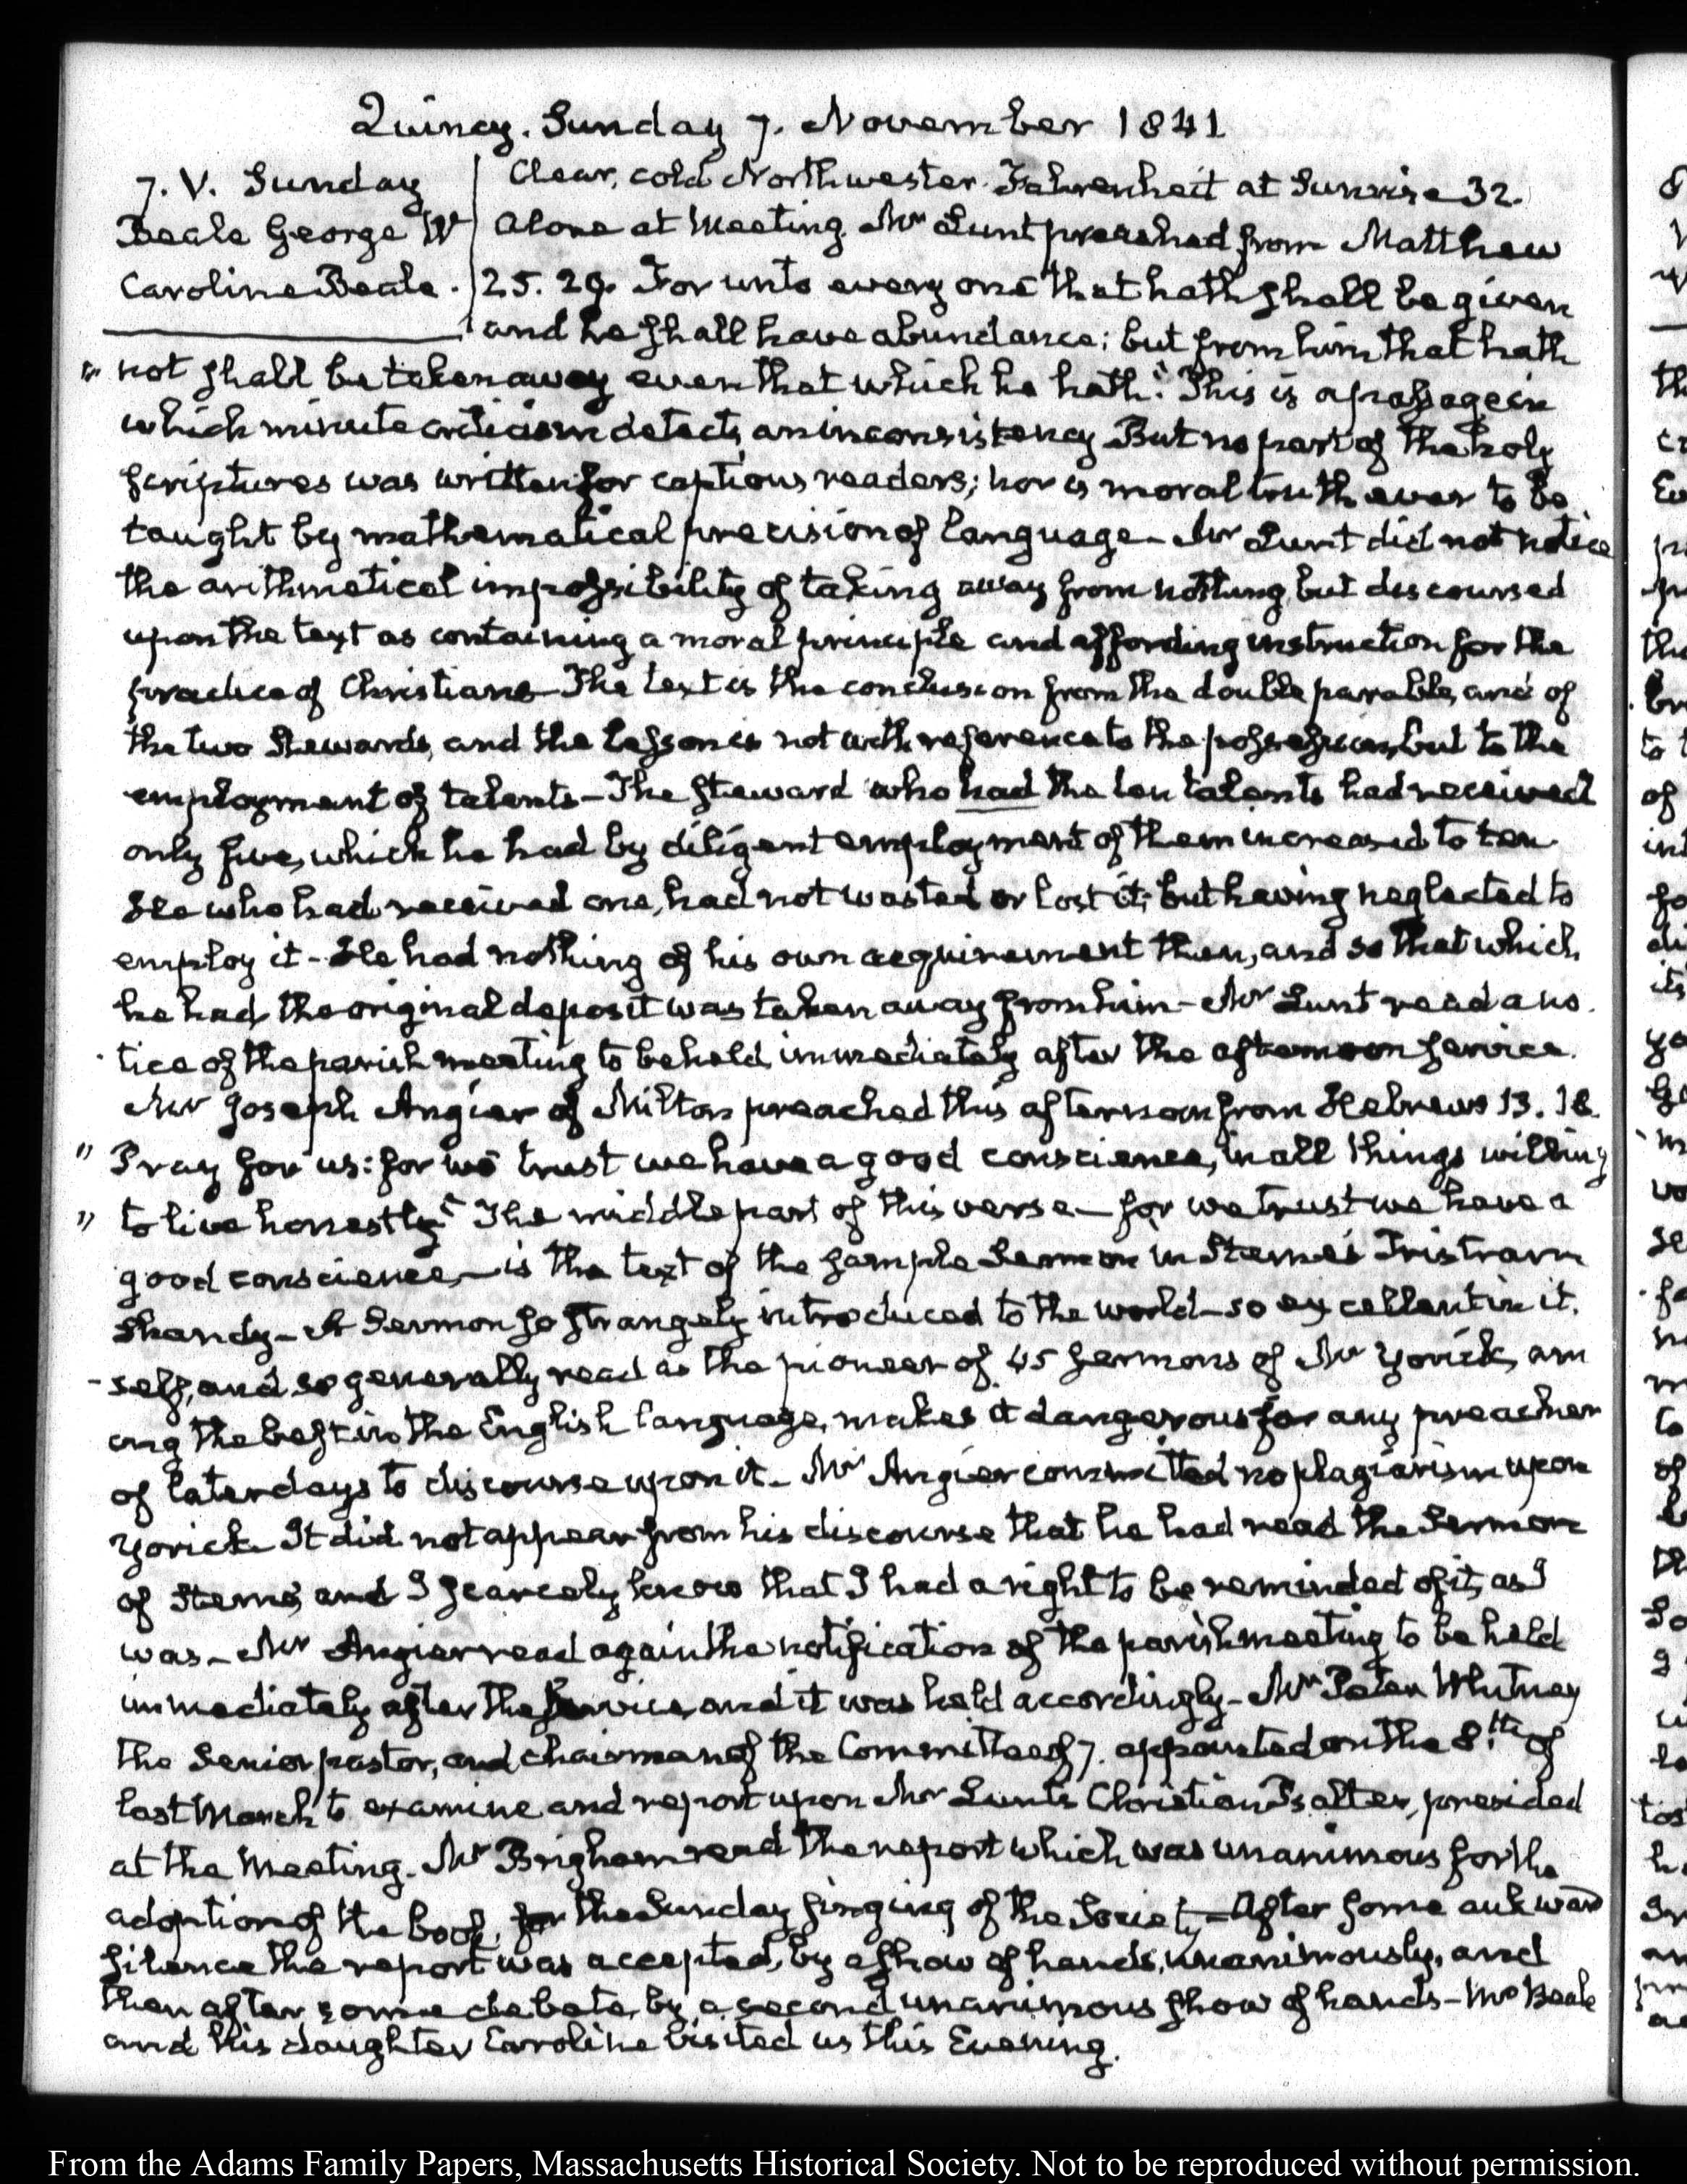 Quincy. Sunday 7. November 1841
7. V. Sunday
Beale George W
Caroline Beale.
Clear, cold Northwester. Fahrenheit at Sunrise 32.
Alone at Meeting. Mr Lunt preached from Matthew
25. 29. For unto every one that hath shall be given
and he shall have abundance; but from him that hath
" not shall be taken away even that which he hath." This is a passage in
which minute criticism detects an inconsistency But no part of the holy
scriptures was written for captious readers; nor is moral truth ever to be
taught by mathematical precision of language - Mr Lunt did not notice
the arithmetical impossibility of taking away from nothing, but discoursed
upon the text as containing a moral principle and affording instruction for the
practice of Christians - The text is the conclusion from the double parable, and of
the two Stewards, and the lesson is not with reference to the possession, but to the
employment of talents - The steward who had the ten talents had received
only five, which he had by diligent employment of them increased to ten.
He who had received one, had not wasted or lost it; but having neglected to
employ it - He had nothing of his own acquirement then, and so that which
he had the original deposit was taken away from him - Mr Lunt read a no-
tice of the parish meeting to be held immediately after the afternoon service.
Mr Joseph Angier of Milton preached this afternoon from Hebrews 13. 18.
" Pray for us: for we trust we have a good conscience, in all things willing
" to live honestly" The middle part of this verse - for we trust we have a
good conscience, - is the text of the sample Sermon in Sterne's Tristram
Shandy - A Sermon so strangely introduced to the world - so excellent in it-
-self, and so generally read as the pioneer of 45 sermons of Mr Yorick, am
ong the best in the English language, makes it dangerous for any preacher
of later days to discourse upon it - Mr Angier committed no plagiarism upon
Yorick. It did not appear from his discourse that he had read the Sermon
of Sterne, and I scarcely know that I had a right to be reminded of it, as I
was - Mr Angier read again the notification of the parish meeting to be held
immediately after the service, and it was held accordingly - Mr Peter Whitney
the Senior pastor, and chairman of the Committee of 7. appointed on the 8th of
last March to examine and report upon Mr Lunt's Christian Psalter, presided
at the Meeting. Mr Brigham read the report which was unanimous for the
adoption of the book, for the Sunday singing of the Society - After some aukward
silence the report was accepted, by a show of hands, unanimously, and
then after some debate, by a second unanimous show of hands - Mr Beale
and his daughter Caroline visited us this Evening.
From the Adams Family Papers, Massachusetts Historical Society. Not to be reproduced without permission.